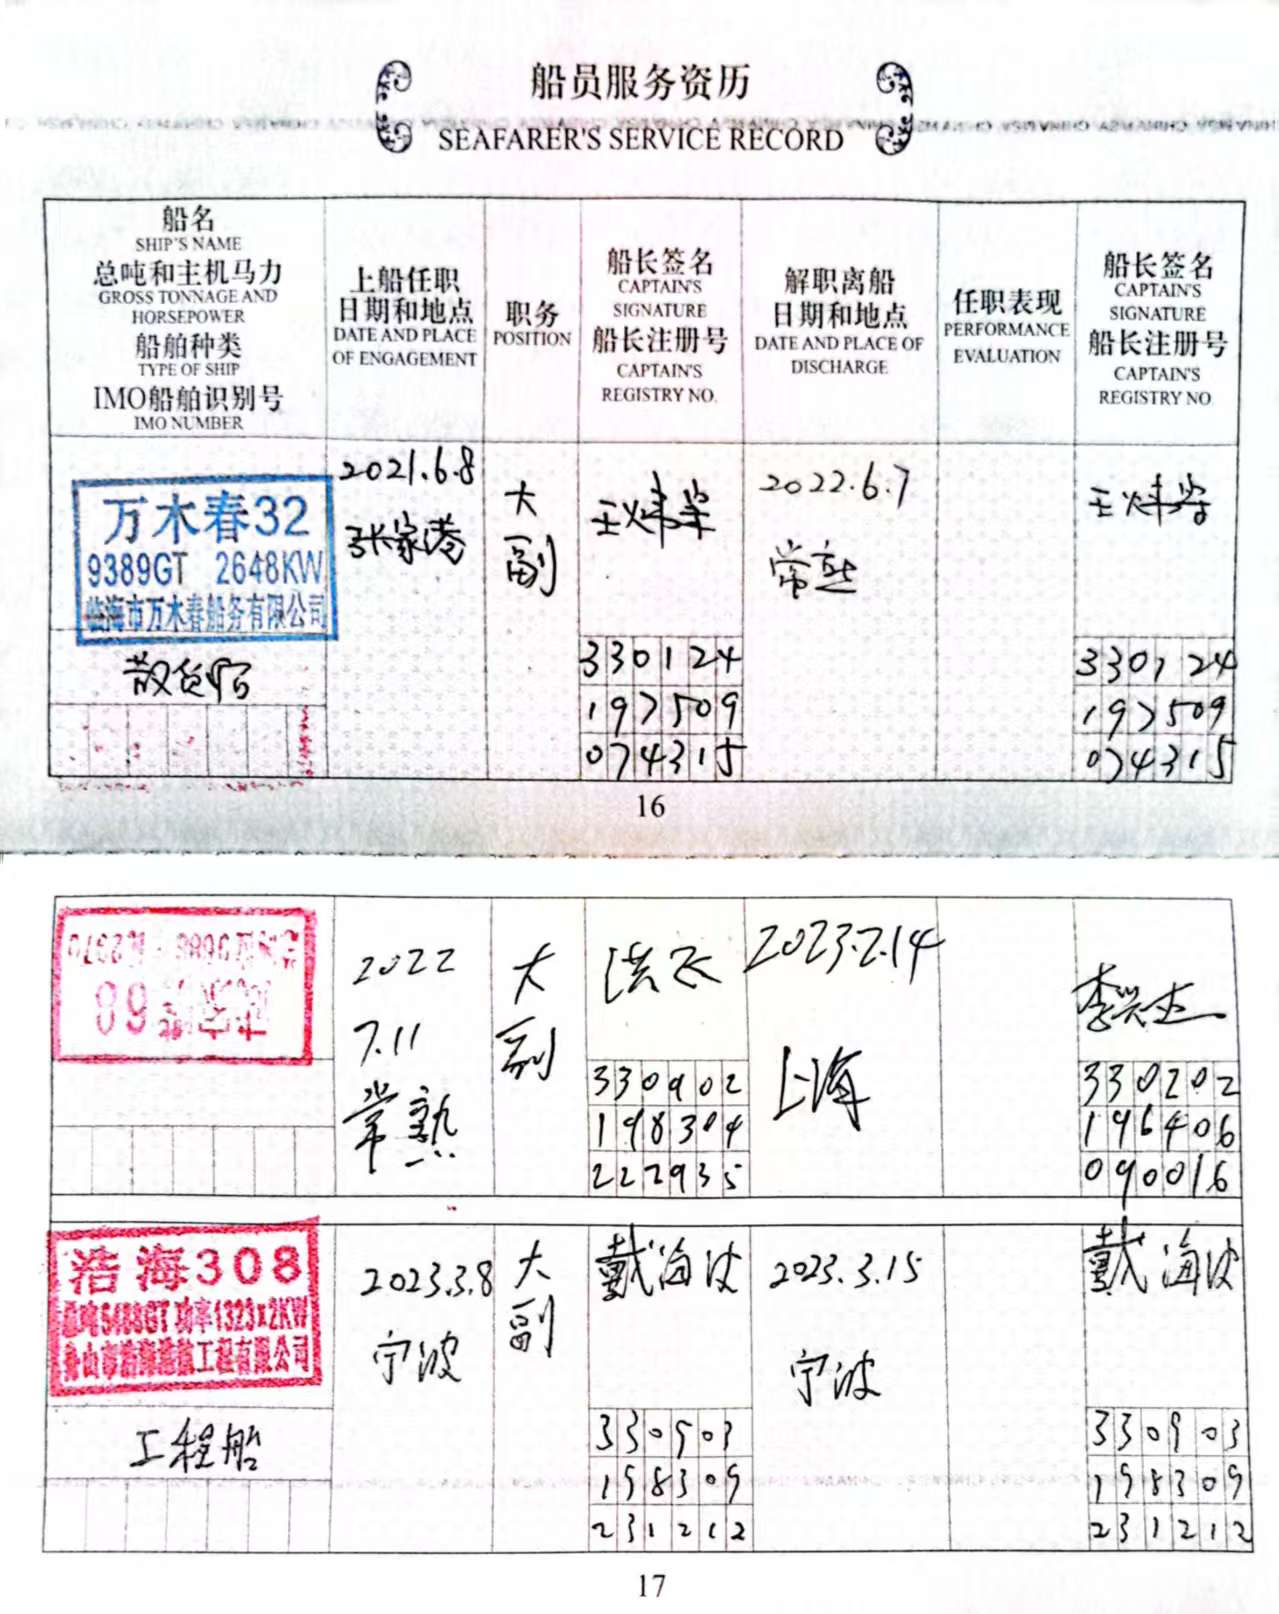 船员服务资历
SEAFARER'S SERVICE RECORD
船名
SHIP'S NAME
总吨和主机马力
GROSS TONNAGE AND
HORSEPOWER
船舶种类
TYPE OF SHIP
IMO船舶识别号
IMO NUMBER
上船任职
日期和地点
DATE AND PLACE
OF ENGAGEMENT
职务
POSITION
船长签名
CAPTAIN'S
SIGNATURE
船长注册号
CAPTAIN'S
REGISTRY NO.
解职离船
日期和地点
DATE AND PLACE OF
DISCHARGE
任职表现
PERFORMANCE
EVALUATION
船长签名
CAPTAIN'S
SIGNATURE
船长注册号
CAPTAIN'S
REGISTRY NO
万木春32
9389GT 2648KW
临海市万木春船务有限公司
散货船
2021.6.8
张家港
大
副
330124
197509
074315
2022.6.7
常熟
330124
197509
074315
16
68
2022
7.11
常熟
大
副
洪飞
330902
198304
222935
2023.2.14
上海
330202
196406
090016
浩海308
总吨5488GT 功率1323x2KW
工程船
2023.3.8
宁波
大
副
戴海波
330903
198309
231212
2023.3.15
宁波
戴海波
330903
198309
231212
17